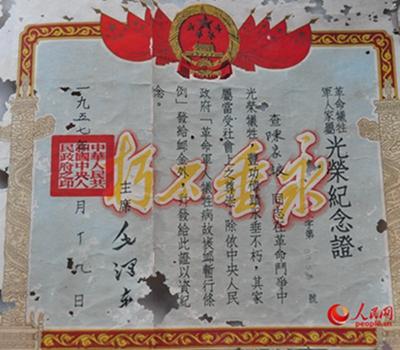 革命犧牲
軍人家屬
光榮紀念證
字第 號
查陳家 同志在革命鬥爭中
光榮犧牲,豐功偉績永垂不朽,其家
屬當受社會上之尊崇。除依中央人民
政府「革命軍人犧牲病故褒卹暫行條
例」發給卹金外,並發給此證以資紀
念。
永垂不朽
主席 毛澤東
中華人民共
和國中央人
民政府之印
一九五七年 月十九日
人民网
people.cn